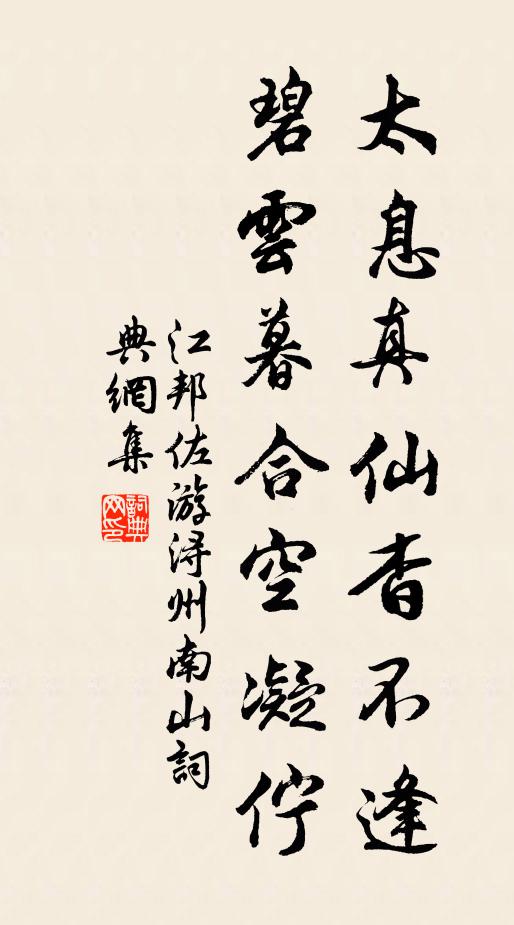 太息真仙杳不逢
碧雲暮合空凝佇
江邦佐游浔州南山詞
典網集
詞典網印